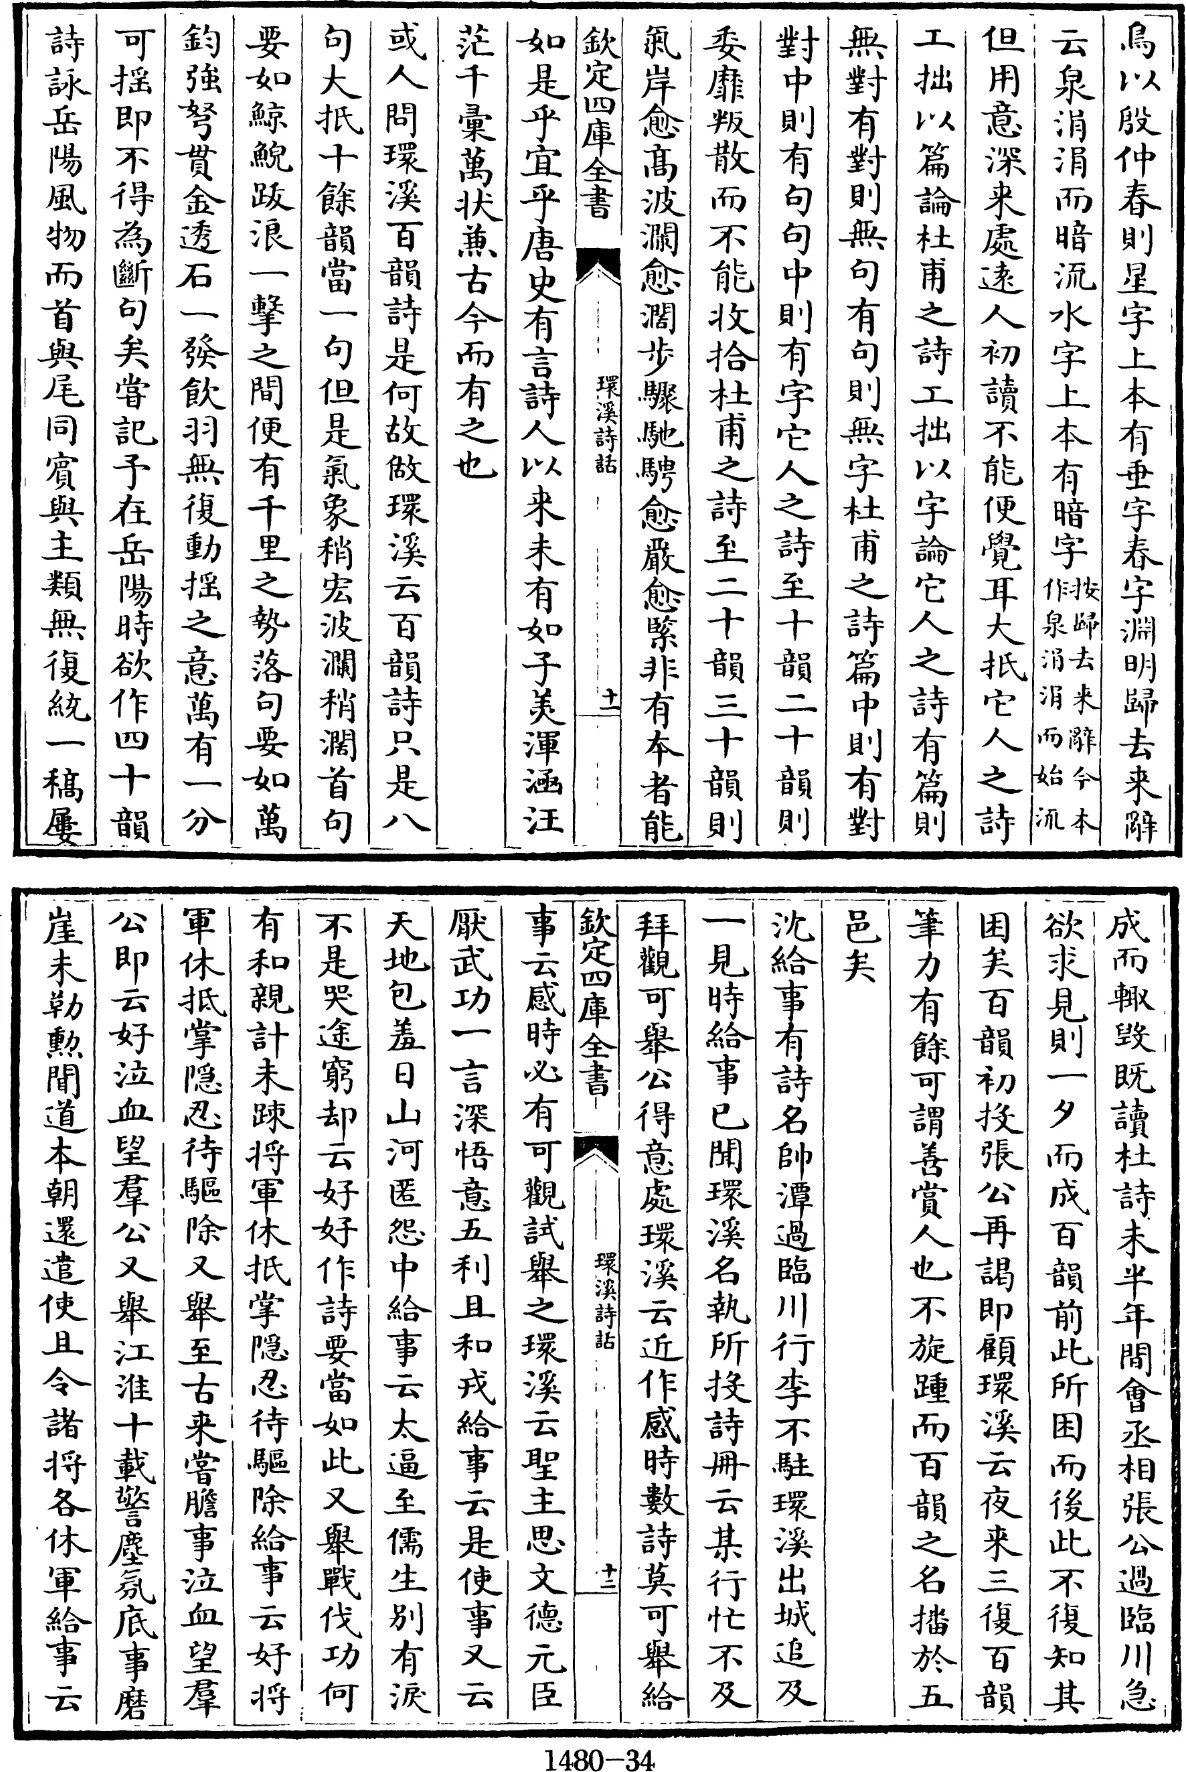 鳥以殷仲春則星字上本有垂字春字淵明歸去来辭
云泉涓涓而暗流水字上本有暗字按歸去来辭今本作泉涓涓而始流
但用意深来處逺人初讀不能便覺耳大抵它人之詩
工拙以篇論杜甫之詩工拙以字論它人之詩有篇則
無對有對則無句有句則無字杜甫之詩篇中則有對
對中則有句句中則有字它人之詩至十韻二十韻則
委靡叛散而不能收拾杜甫之詩至二十韻三十韻則
氣岸愈髙波瀾愈濶步驟馳騁愈嚴愈緊非有本者能
欽定四庫全書
環溪詩話
十一
如是乎宜乎唐史有言詩人以来未有如子美渾涵汪
茫千彚萬状兼古今而有之也
或人問環溪百韻詩是何故做環溪云百韻詩只是八
句大抵十餘韻當一句但是氣象稍宏波瀾稍濶首句
要如鯨鯢跋浪一擊之間便有千里之勢落句要如萬
鈞強弩貫金透石一發飲羽無復動揺之意萬有一分
可揺即不得為斷句矣嘗記予在岳陽時欲作四十韻
詩詠岳陽風物而首與尾同賓與主類無復統一稿屢
成而輙毁既讀杜詩未半年間會丞相張公過臨川急
欲求見則一夕而成百韻前此所困而後此不復知其
困矣百韻初投張公再謁即顧環溪云夜来三復百韻
筆力有餘可謂善賞人也不旋踵而百韻之名播於五
邑矣
沈給事有詩名帥潭過臨川行李不駐環溪出城追及
一見時給事已聞環溪名執所投詩冊云某行忙不及
拜觀可舉公得意處環溪云近作感時數詩莫可舉給
欽定四庫全書
環溪詩話
十二
事云感時必有可觀試舉之環溪云聖主思文德元臣
厭武功一言深悟意五利且和戎給事云是使事又云
天地包羞日山河匿怨中給事云太逼至儒生别有淚
不是哭途窮却云好好作詩要當如此又舉戰伐功何
有和親計未踈將軍休抵掌隠忍待驅除給事云好將
軍休抵掌隠忍待驅除又舉至古来嘗膽事泣血望羣
公即云好泣血望羣公又舉江淮十載警塵氛底事磨
崖未勒勲聞道本朝還遣使且令諸將各休軍給事云
1480-34